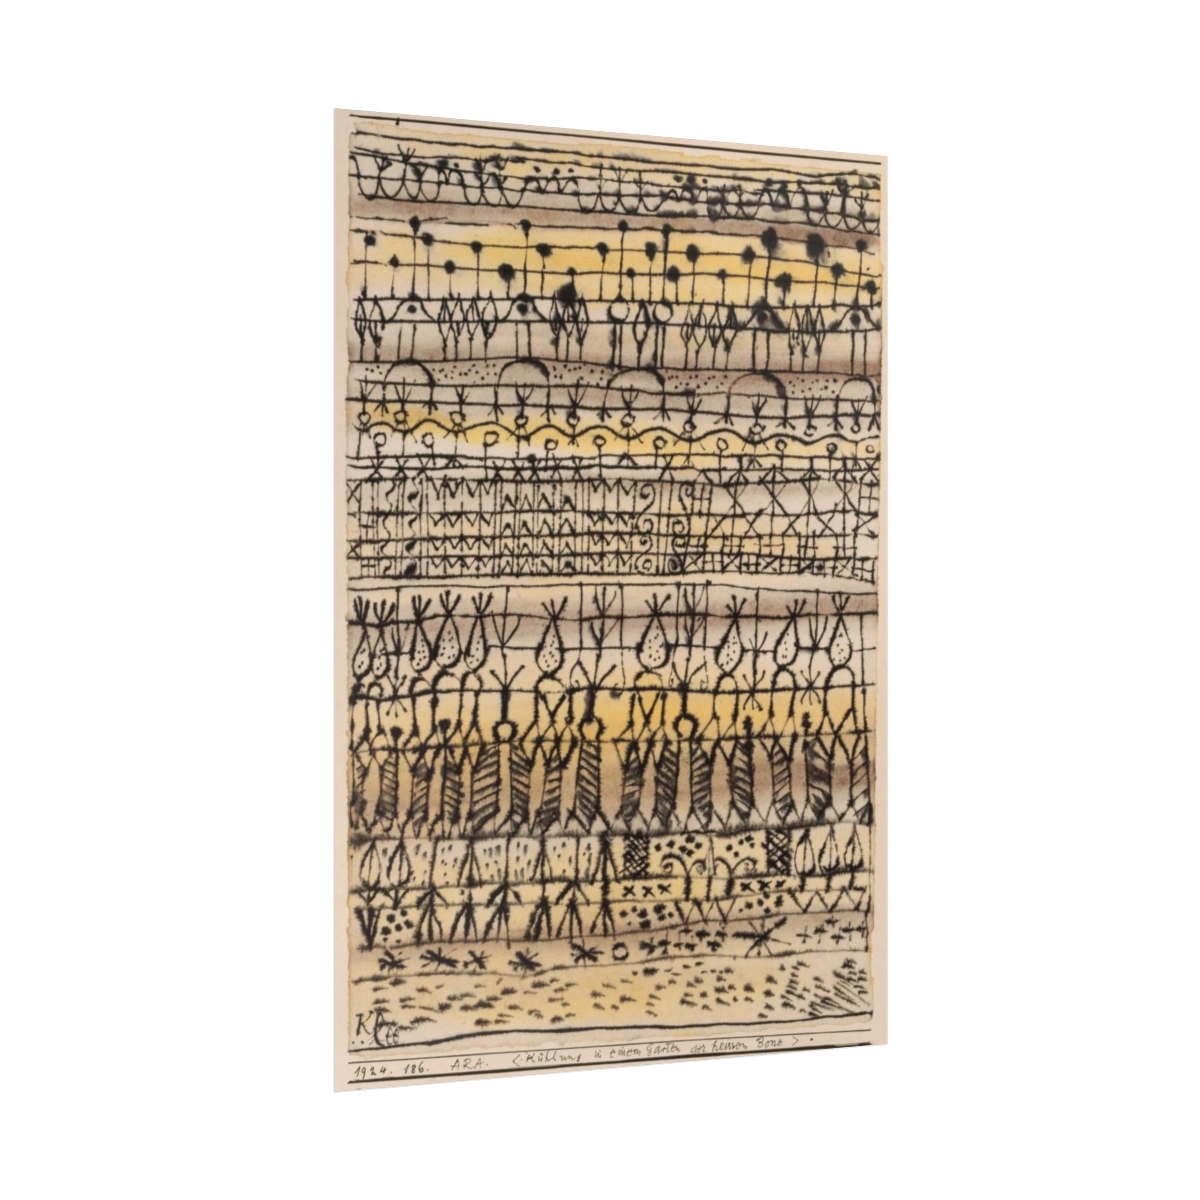 Klee
1924. 186. ARA. <Kühlung in einem Garten der heissen Zone>.